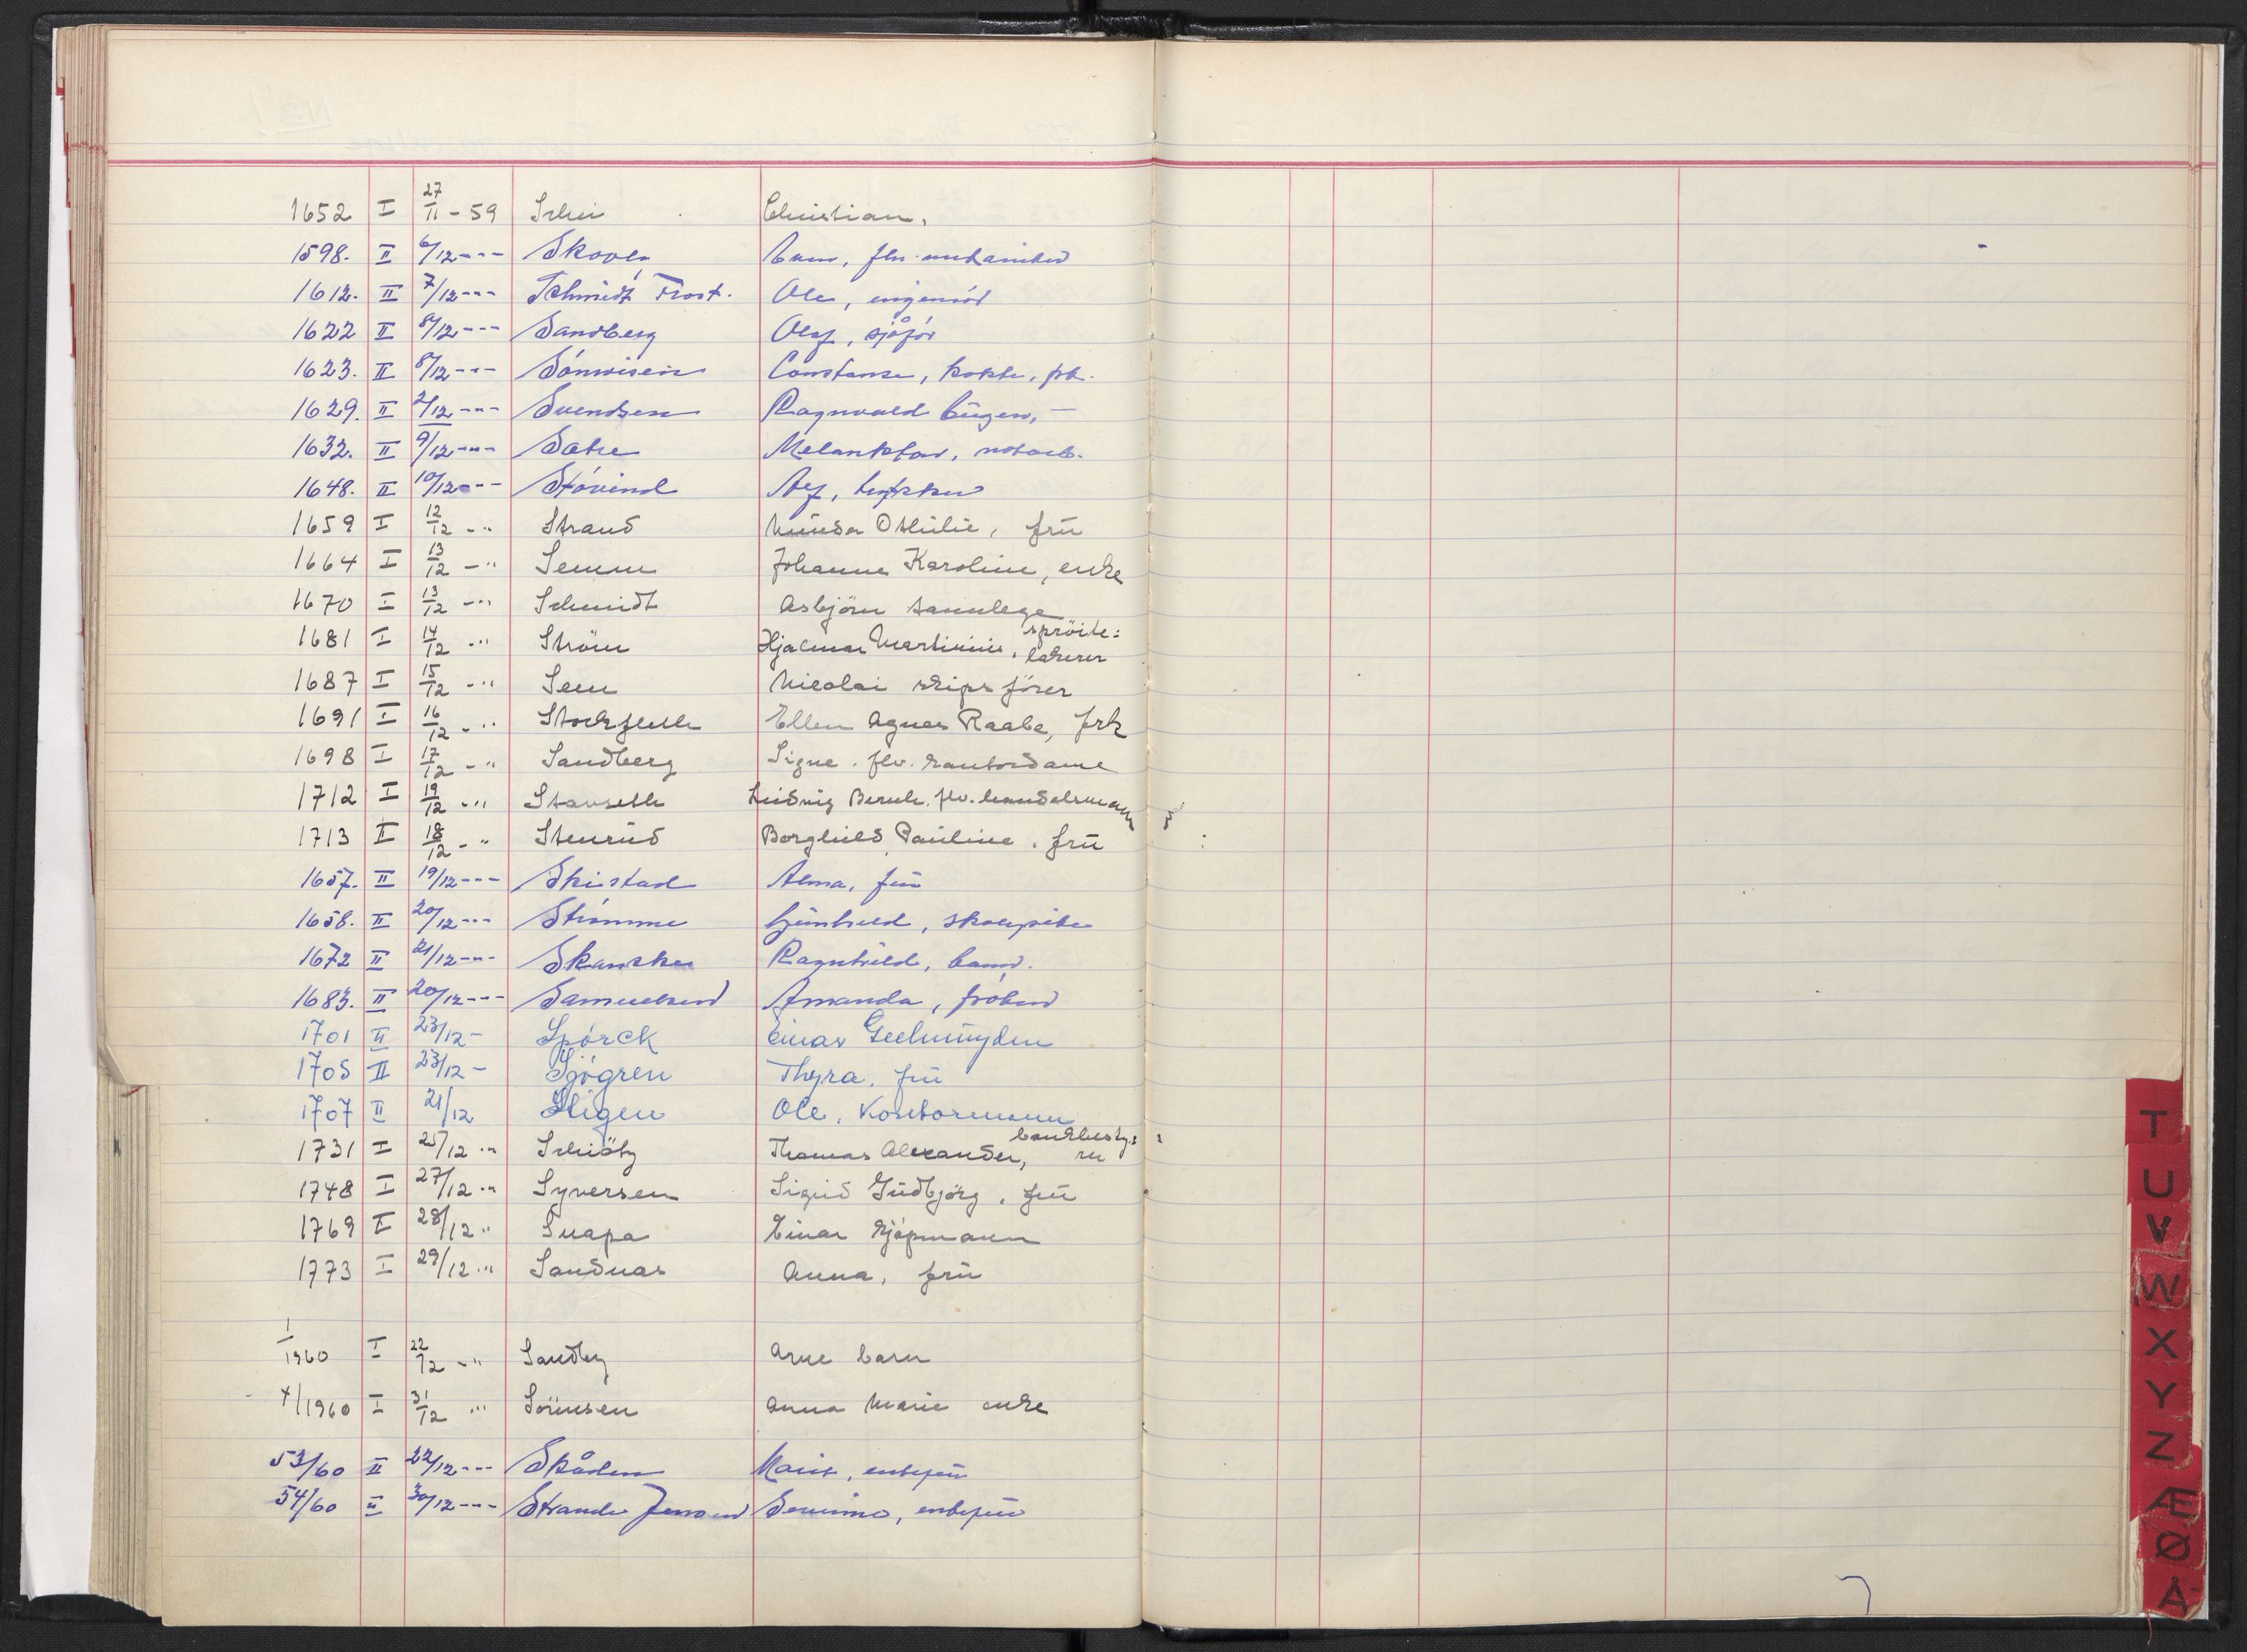 1652 I 27/11 - 59 Schei Christian,
1598. II 6/12 --- Skoven
1612. II 7/12 --- Schmidt Frost. Ole, ingeniör
1622 II 8/12 --- Sandberg Olaf, sjåför
1623. II 8/12 --- Sönvisen Constanse, kokke, frk.
1629. II 2/12 --- Svendsen Ragnvald Eugen, —
1632. II 9/12 --- Satre Melankton, notarb.
1648. II 10/12 --- Stövind
1659 I 12/12 - " Strand Othilie, frü
1664 I 13/12 - " Semm Johanne Karoline, enke
1670 I 13/12 - " Schmidt Asbjörn tannlege
1681 I 14/12 - " Ström Hjalmar Martinius, spröite: lakerer
1687 I 15/12 - " Sem Nicolai skipsförer
1691 I 16/12 - " Stockfleth Ellen Agnes Raabe, frk
1698 I 17/12 - " Sandberg Signe. flv. kontordame
1712 I 19/12 - " Stavseth Ludvig Bernh. flv. handelsmann
1713 I 18/12 - " Stenrud Borghild Pauline, frü
1657. II 19/12 --- Skistad Alma, frü
1658. II 20/12 --- Strömme Gunhild, skolepike
1672 II 21/12 --- Skancke Ragnhild, barn.
1683. II 20/12 --- Samuelsen Amanda, fröken
1701 II 23/12 - Spörck Einar Geelmuyden
1705 II 23/12 - Sjögren Thyra, frü
1707 II 21/12 Stigen Ole, Kontormann
1731 I 25/12 - " Schiötz Thomas Alexander, bankbesty: rer
1748 I 27/12 - " Syversen Sigrid Gudbjörg, frü
1769 I 28/12 " Snapa Einar Kjöpmann
1773 I 29/12 - " Sandnas Anna, frü
1/1960 I 22/12 - " Sandby Arne barn
4/1960 I 31/12 " Sörensen Anna Marie enke
53/60 II 22/12 --- Skåden Marit, enkefrü
54/60 II 30/12 --- Strande Jensen enkefrü
T
U
V
W
X
Y
Z
Æ
Ø
Å